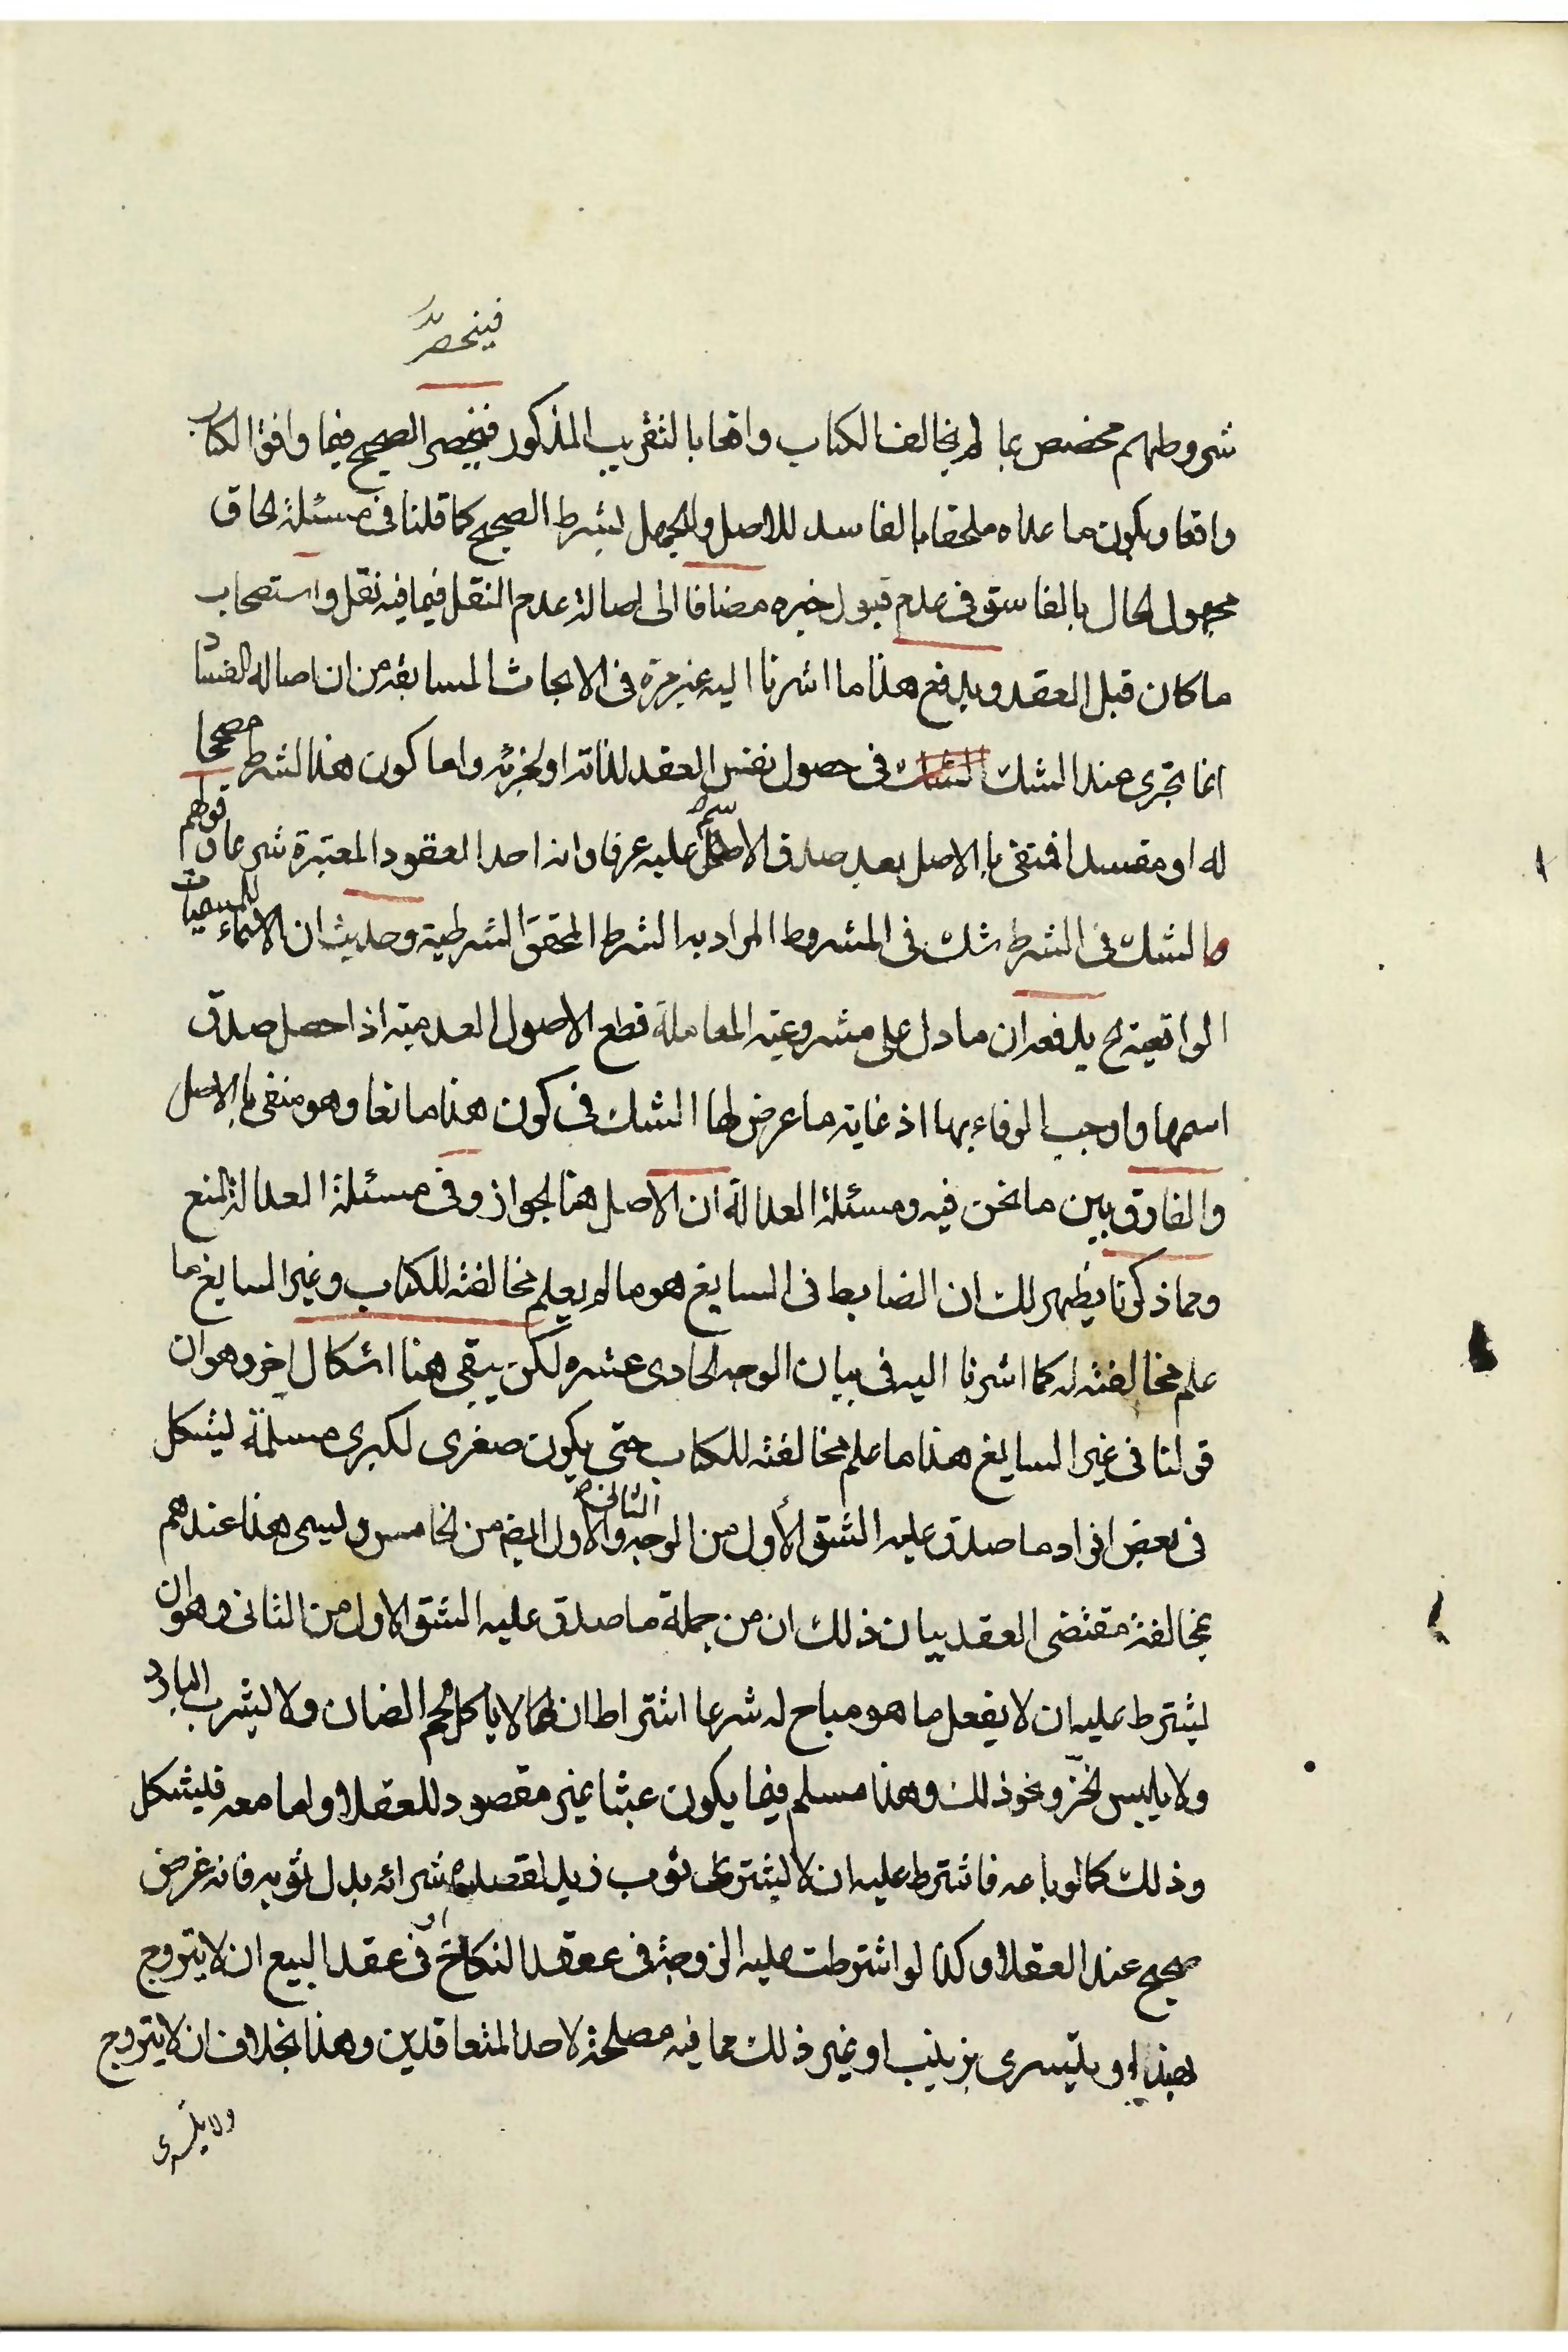 فينحصر
شروطهم مخصص بما لم يخالف الكتاب واقعا بالتقريب المذكور فينحصر الصحيح فيما وافق الكتاب
واقعا ويكون ما عداه ملحقا بالفاسد للاصل والجهل بشرط الصحيح كما قلنا في مسئلة لحاق
مجهول الحال بالفاسق في عدم قبول خبره مضافا الى اصالة عدم النقل فيما فيه نقل واستصحاب
ما كان قبل العقد ويدفع هذا ما اشرنا اليه غير مرة في الابحاث السابقة من ان اصالة الفساد
انما تجرى عند الشك في حصول نفس العقد لذاته او لجزئه واما كون هذا الشرط مصححا
له او مفسدا فمنتفى بالاصل بعد صدق الاسم عليه عرفا وانه احد العقود المعتبرة شرعا وقولهم
والشك في الشرط شك في المشروط المراد به الشرط المحقق الشرطية وحديث ان الاسماء للمسميات
الواقعية ح يدفعه ان ما دل على مشروعية المعاملة قطع الاصول العدمية اذا حصل صدق
اسمها واوجب الوفاء بها اذ غاية ما عرض لها الشك في كون هذا مانعا وهو منفى بالاصل
والفارق بين ما نحن فيه ومسئلة العدالة ان الاصل هنا الجواز وفي مسئلة العدالة المنع
ومما ذكرنا يظهر لك ان الضابط في السايغ هو ما لم يعلم مخالفته للكتاب وغير السايغ ما
علم مخالفته له كما اشرنا اليه في بيان الوجه الحادى عشره لكن يبقى هنا اشكال اخر وهو ان
قولنا في غير السايغ هذا ما علم مخالفته للكتاب حتى يكون صغرى لكبرى مسلمة ليشكل
في بعض افراد ما صدق عليه الشق الأول من الوجه الثانى والاول ايضم من الخامس وليسمى هذا عندهم
بمخالفة مقتضى العقد بيان ذلك ان من جملة ما صدق عليه الشق الاول من الثانى وهو ان
ليشترط عليه ان لا يفعل ما هو مباح له شرعا اشتراط ان لا ياكل لحم الضان ولا ليشرب البارد
ولا يلبس الخز ونحو ذلك وهذا مسلم فيما يكون عبثا غير مقصود للعقلاء واما معه فليشكل
وذلك كما لو باعه فاشترط عليه ان لا ليشترى ثوب زيد لقصده شرائه بدل ثوبه فانه غرض
صحيح عند العقلاء وكذا لو اشترطت عليه الزوجة في عقد النكاح او في عقد البيع ان لا يتزوج
بهذا او يتسرى بزينب او غير ذلك مما فيه مصلحة لاحد المتعاقدين وهذا بخلاف ان لا يتزوج
ولا يتسرى